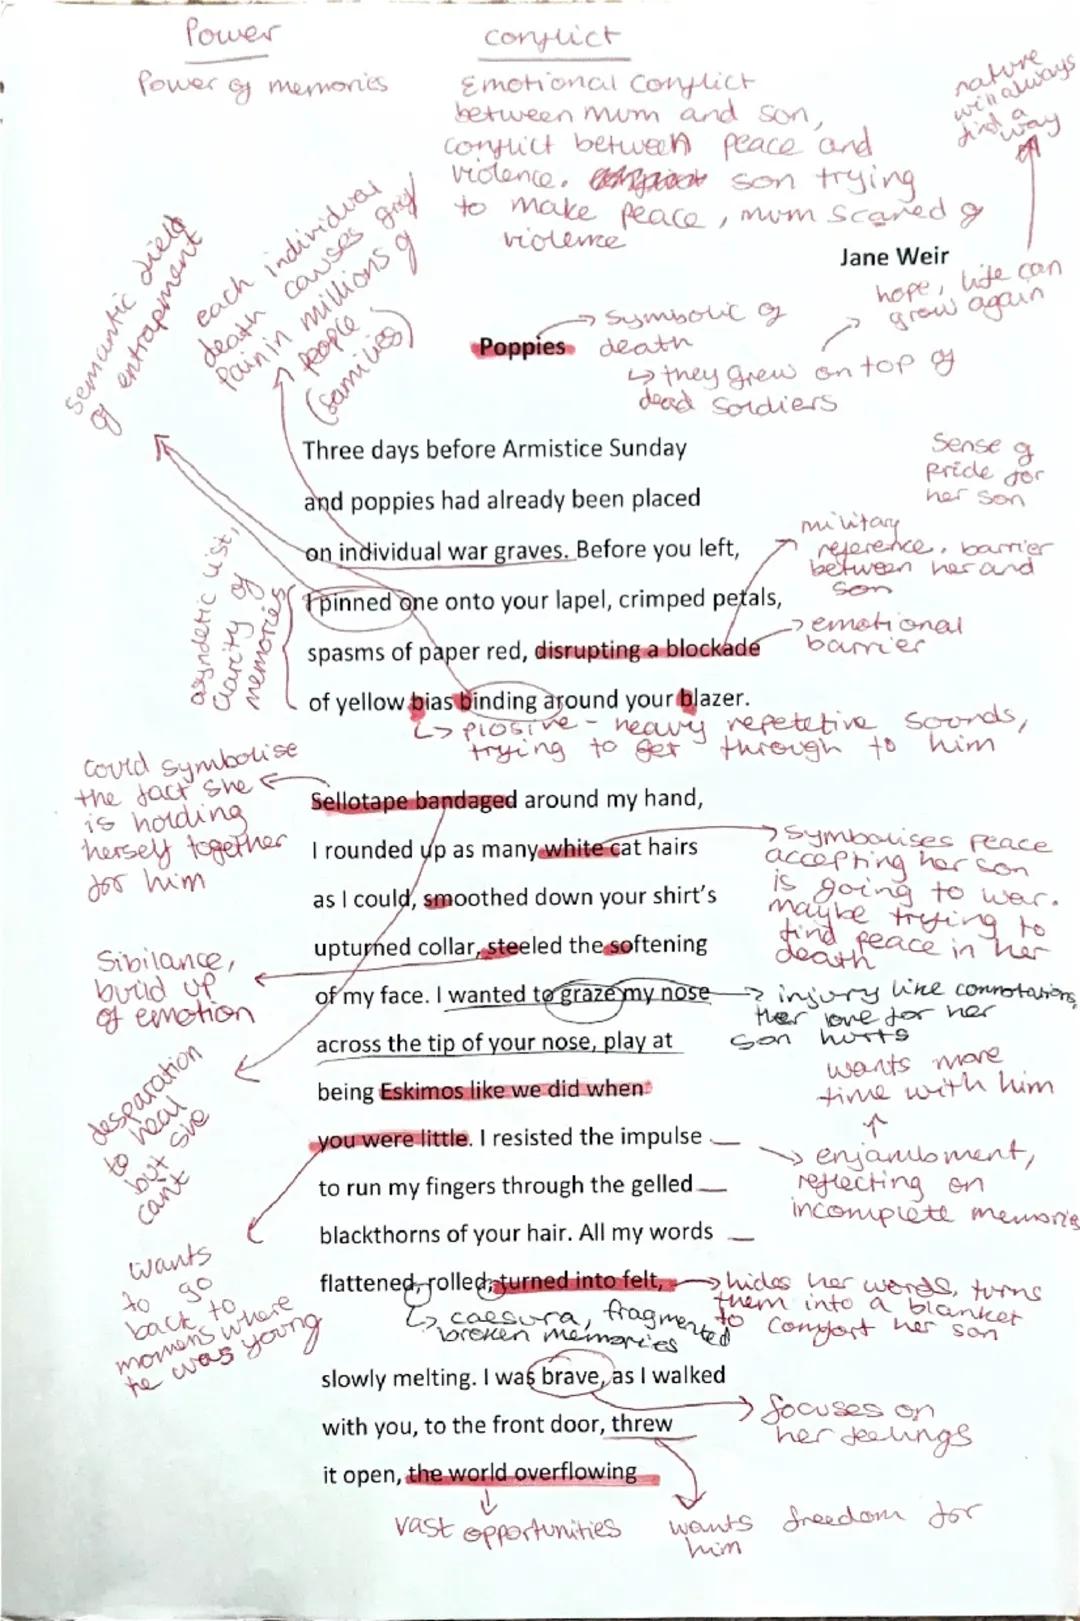 Power
conflict
Power of memories
Emotional conflict
between mum and son,
conflict between peace and
violence. son trying
to make peace, mum scared of
violence
nature
will always
find a
way
Jane Weir
hope, life can
grow again
semantic field
of entrapment
each individual
death causes grief
pain in millions of
people
(families)
Poppies
symbolic of
death
they grew on top of
dead soldiers
Three days before Armistice Sunday
and poppies had already been placed
on individual war graves. Before you left,
I pinned one onto your lapel, crimped petals,
spasms of paper red, disrupting a blockade
of yellow bias binding around your blazer.
Sense of
pride for
her son
military
reference, barrier
between her and
son
emotional
barrier
asyndetic list,
clarity of
memories
plosive - heavy repetetive sounds,
trying to get through to him
Could symbolise
the fact she
is holding
herself together
for him
Sellotape bandaged around my hand,
I rounded up as many white cat hairs
as I could, smoothed down your shirt's
upturned collar, steeled the softening
of my face. I wanted to graze my nose
across the tip of your nose, play at
being Eskimos like we did when
you were little. I resisted the impulse
to run my fingers through the gelled
blackthorns of your hair. All my words
flattened, rolled, turned into felt,
symbolises peace
accepting her son
is going to war.
maybe trying to
find peace in her
death
Sibilance,
build up
of emotion
injury like connotations,
her love for her
son hurts
desparation
to heal
but she
can't
wants more
time with him
enjambment,
reflecting on
incomplete memories
wants
to go
back to
momens where
he was young
hides her words, turns
them into a blanket
to comfort her son
caesura, fragmented
broken memories
slowly melting. I was brave, as I walked
with you, to the front door, threw
it open, the world overflowing
focuses on
her feelings
vast opportunities
wants freedom for
him